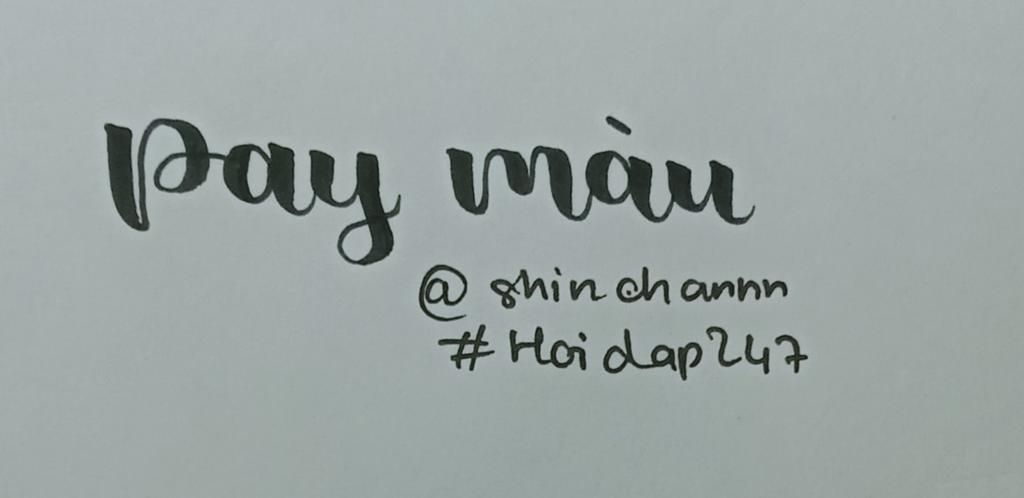 Pay màu
@ shinchannn
# Hoidap247